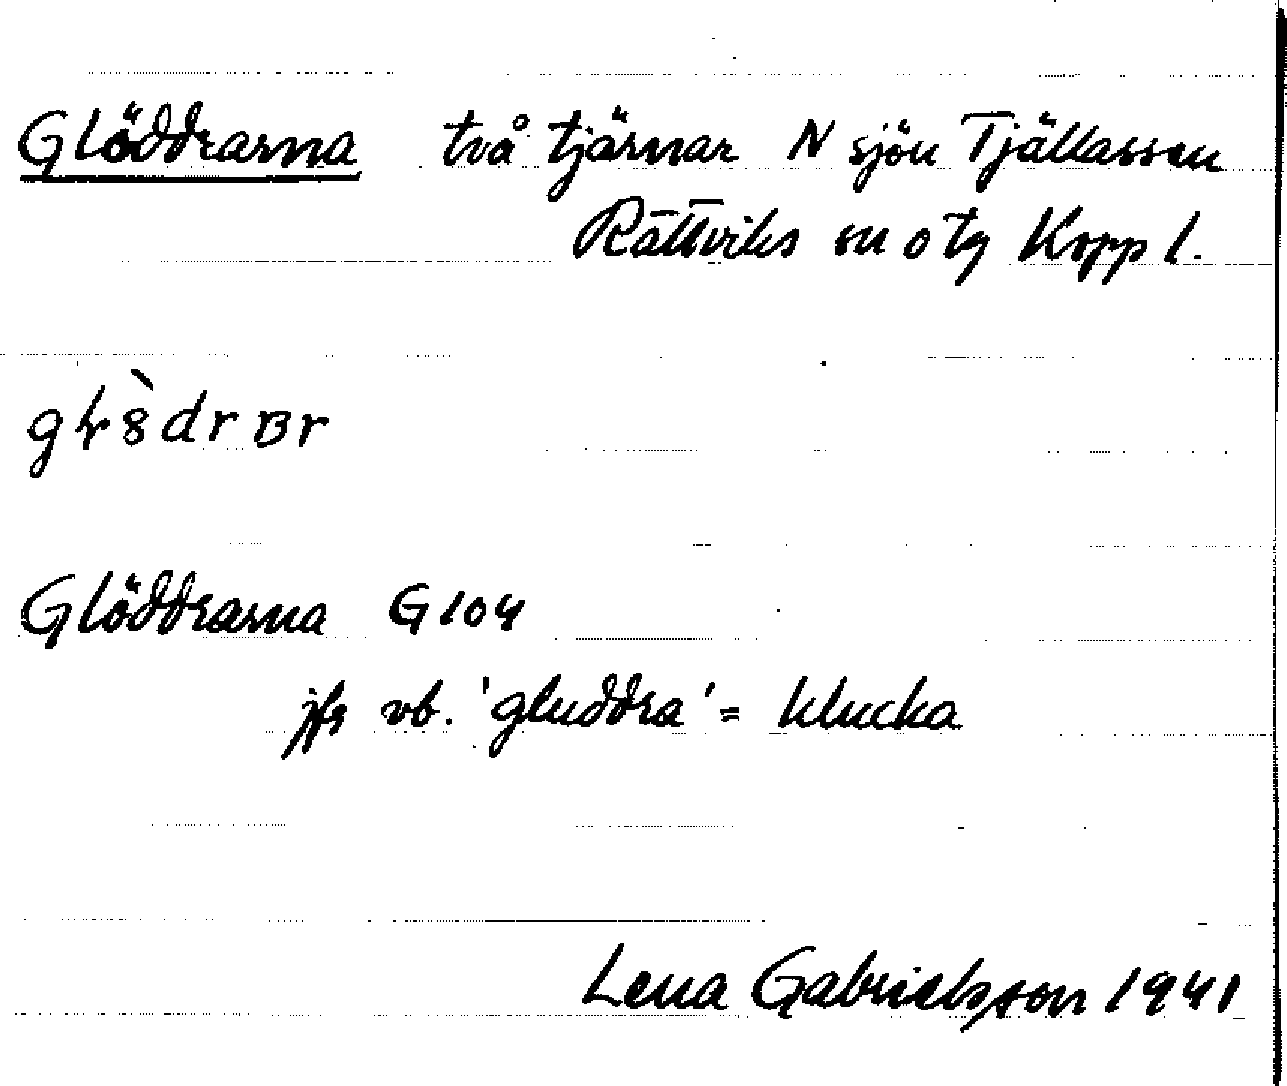 Glöddrarna två tjärnar N sjön Tjällassen
Rättviks sn o tg Kopp l.
Glöddrarna G 104
jfr vb. 'gluddra' = klucka
Lena Gabrielsson 1941